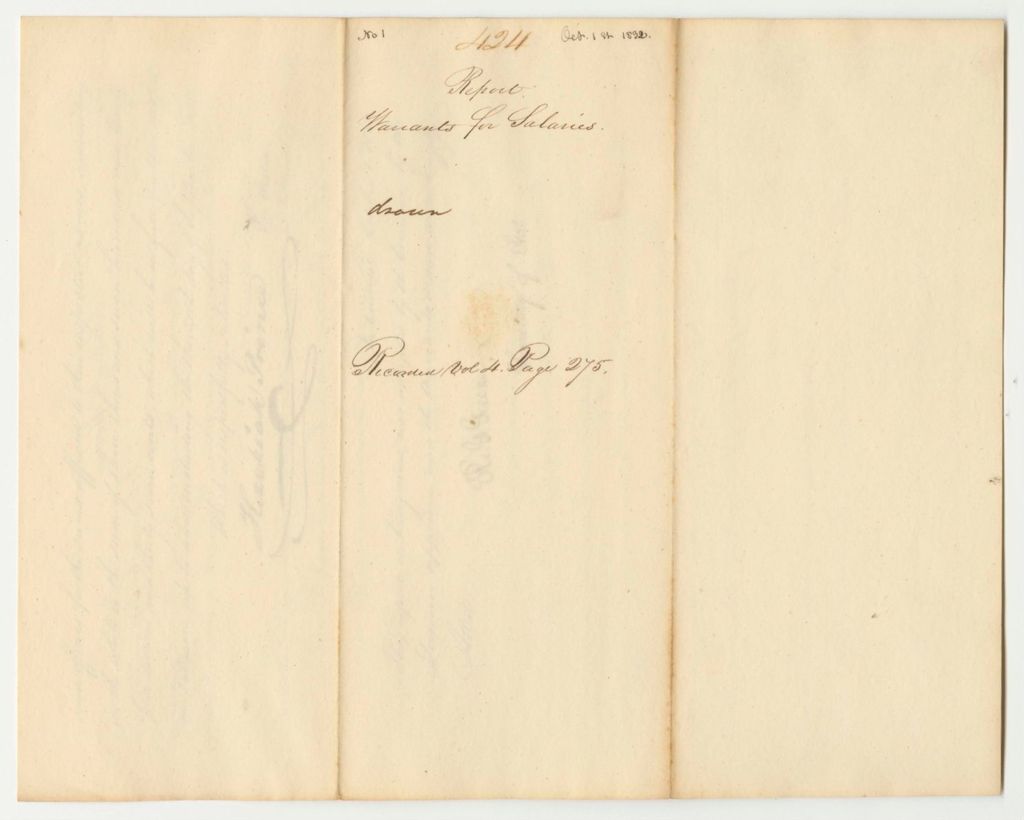 No 1 424 Oct. 1st 1832.
Report.
Warrants for Salaries.
drawn
Recorded Vol 4. Page 275.